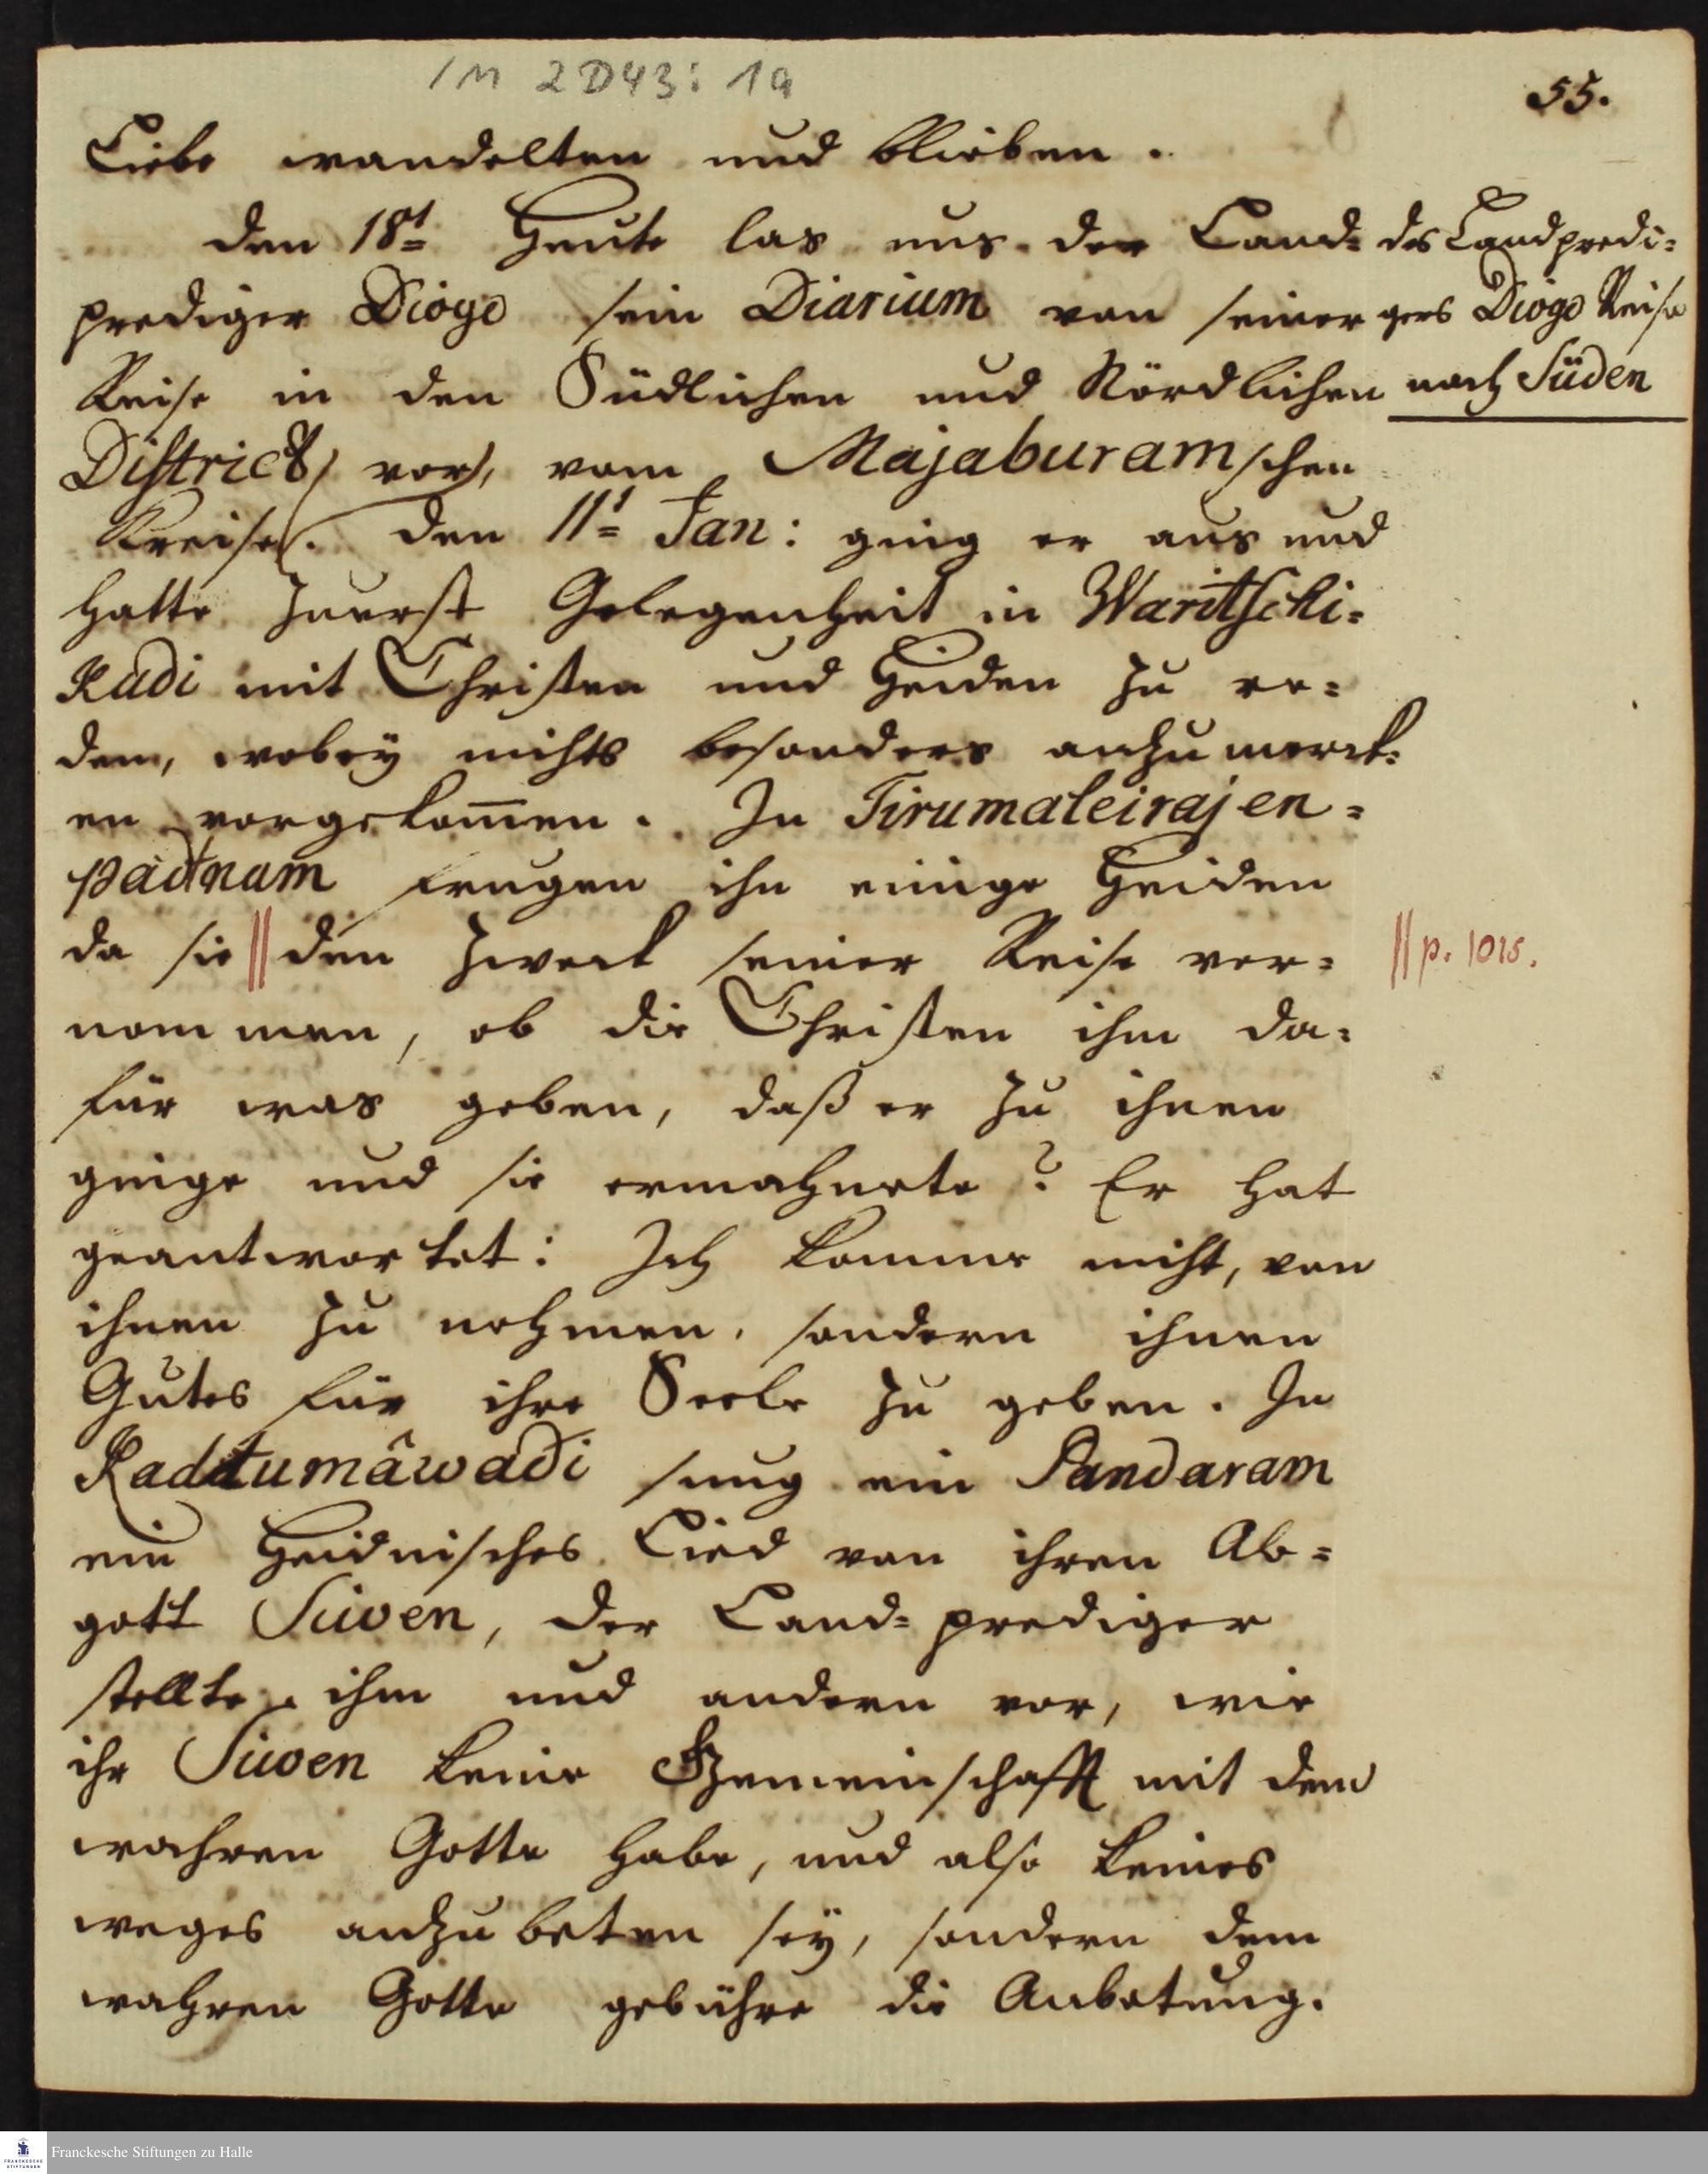 1M 2D43: 19
55.
Liebe wandelten und blieben.
den 18t Heute las uns der Land=
prediger Diogo sein Diarium von seiner
Reise in den Südlichen und Nördlichen
District vor, vom Majaburamschen
Kreise. den 11t Jan: ging er aus und
hatte zuerst Gelegenheit in Waritschi=
kudi mit Christen und Heiden zu re=
den, wobey nichts besonders anzumerck=
en vorgekom̅en. In Tirumaleirajen=
padnam frugen ihn einige Heiden
da sie || den Zweck seiner Reise ver=
nommen, ob die Christen ihm da=
für was geben, daß er zu ihnen
ginge und sie ermahnete? Er hat
geantwortet: Ich komme nicht, von
ihnen zu nehmen, sondern ihnen
Gutes für ihre Seele zu geben. In
Kaddumâwadi sung ein Pandaram
ein Heidnisches Lied von ihren Ab=
gott Siwen, der Land=prediger
stellte ihm und andern vor, wie
ihr Siwen keine Gemeinschafft mit dem
wahren Gotte habe, und also keines
weges anzubeten sey, sondern dem
wahren Gotte gebühre die Anbetung.
des Landpredi=
gers Diogo Reise
nach Süden
|| p. 1015.
Franckesche Stiftungen zu Halle